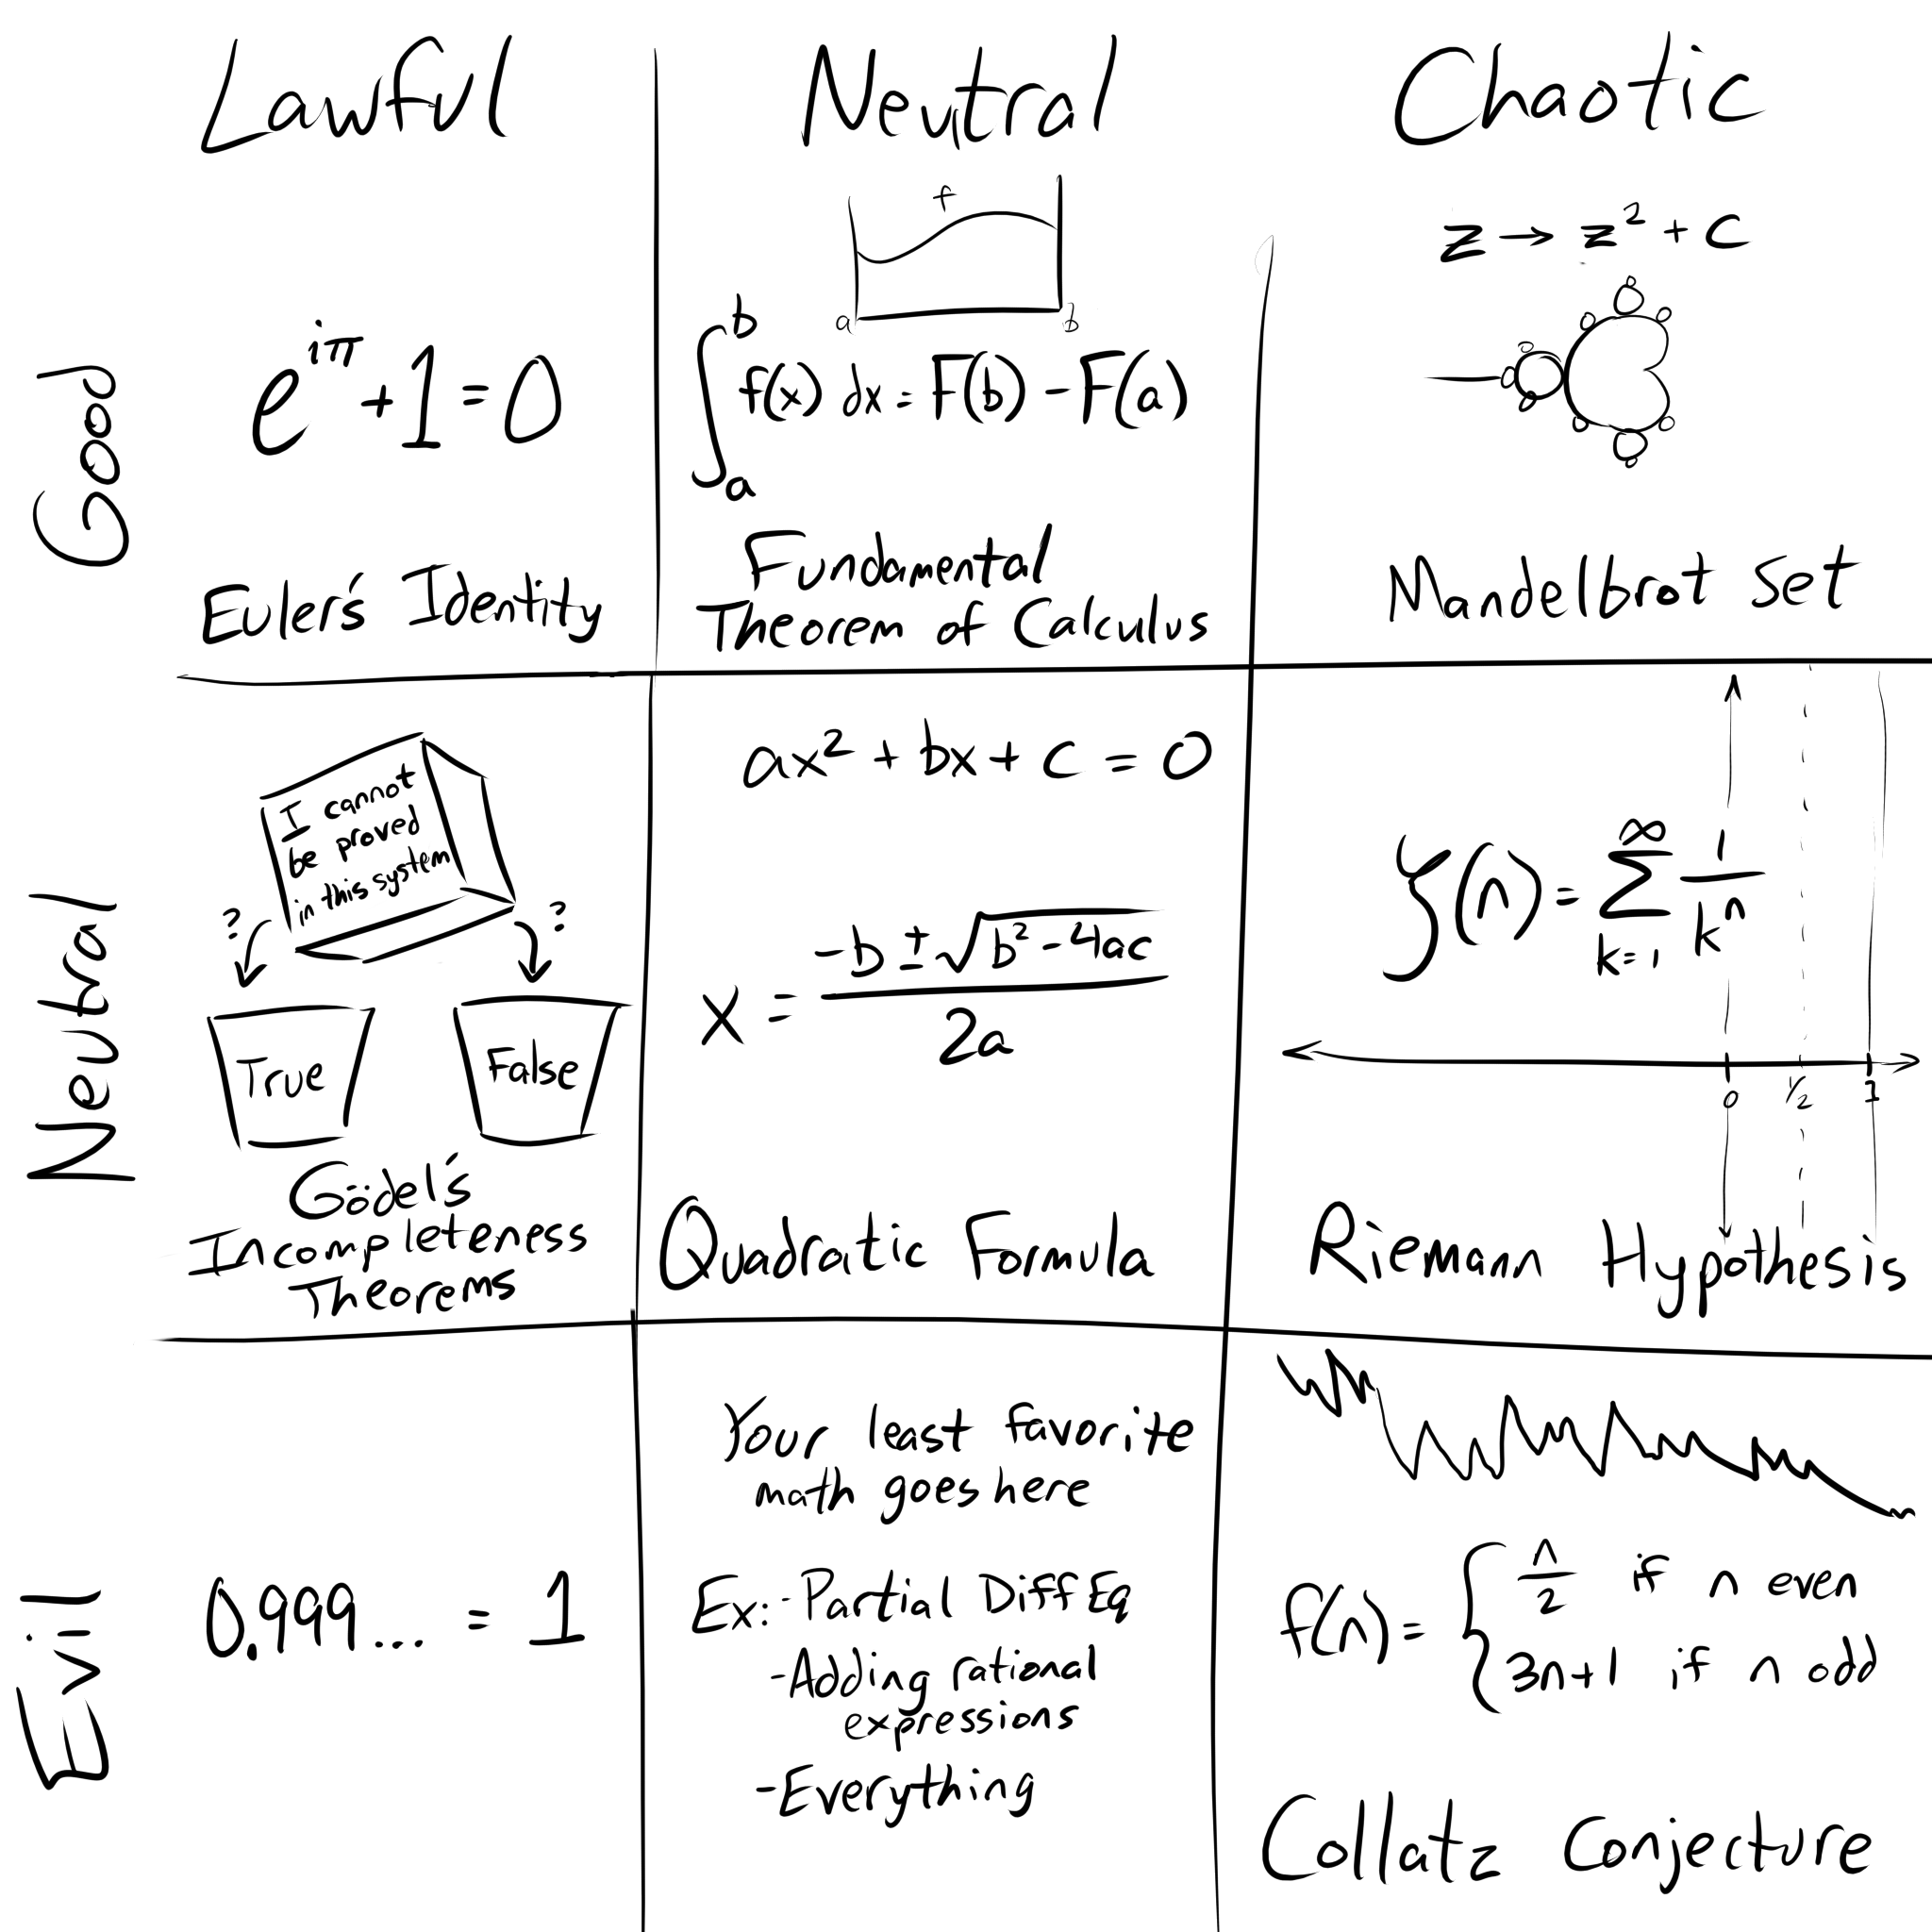 Lawful Neutral Chaotic
Good
e^{iπ} + 1 = 0
Euler's Identity
f
a b
∫_a^b f(x) dx = F(b) - F(a)
Fundamental
Theorem of Calculus
z → z² + c
Mandelbrot Set
Neutral
I cannot
be proved
in this system
? ?
True False
Gödel's
Incompleteness
Theorems
ax² + bx + c = 0
x = (-b ± √(b² - 4ac)) / 2a
Quadratic Formula
ζ(n) = ∑_{k=1}^∞ 1/k^n
0 1/2 1
Riemann Hypothesis
Evil
0.999... = 1
Your least favorite
math goes here
Ex: - Partial Diff Eq
- Adding rational
expressions
- Everything
f(n) = { n/2 if n even
3n+1 if n odd
Collatz Conjecture